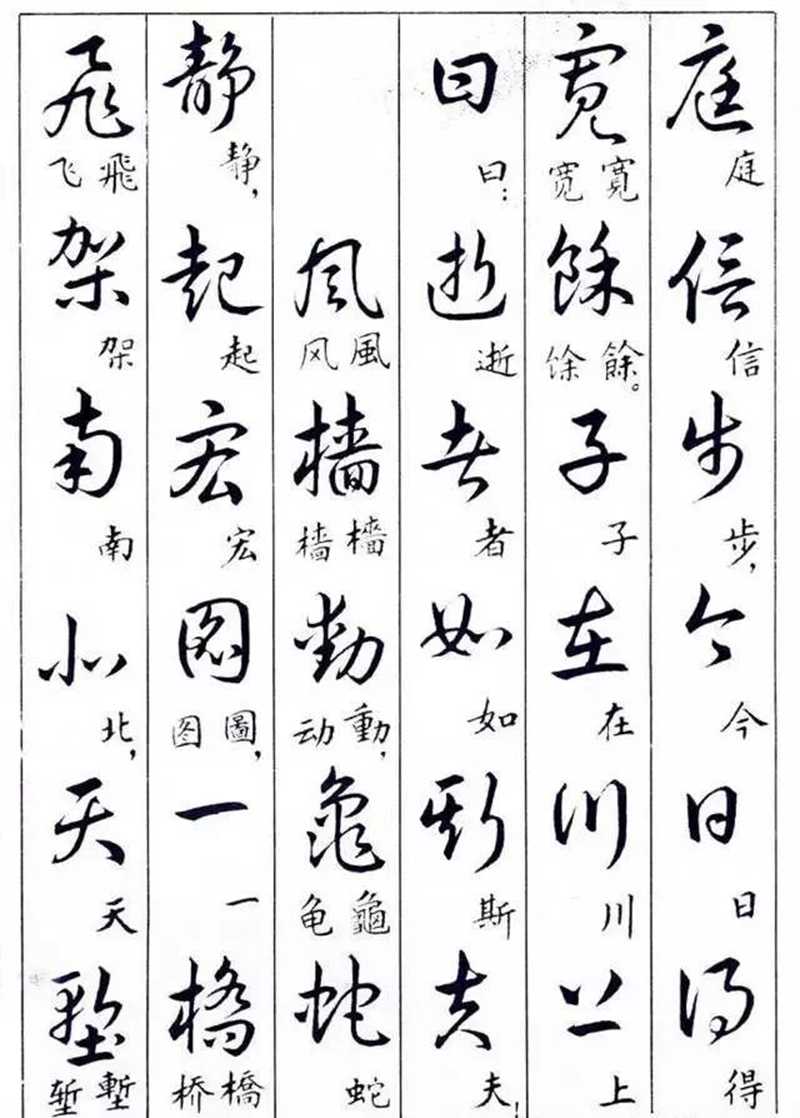 庭 庭 信 信 步 步， 今 今 日 日 得 得
寬 寬 宽 餘 餘。 馀 子 子 在 在 川 川 上 上
曰 曰： 逝 逝 者 者 如 如 斯 斯 夫 夫！
風 風 风 檣 檣 樯 動 動， 动 龜 龜 龟 蛇 蛇
静 静， 起 起 宏 宏 圖 圖， 图 一 一 橋 橋 桥
飛 飛 飞 架 架 南 南 北 北， 天 天 塹 塹 堑